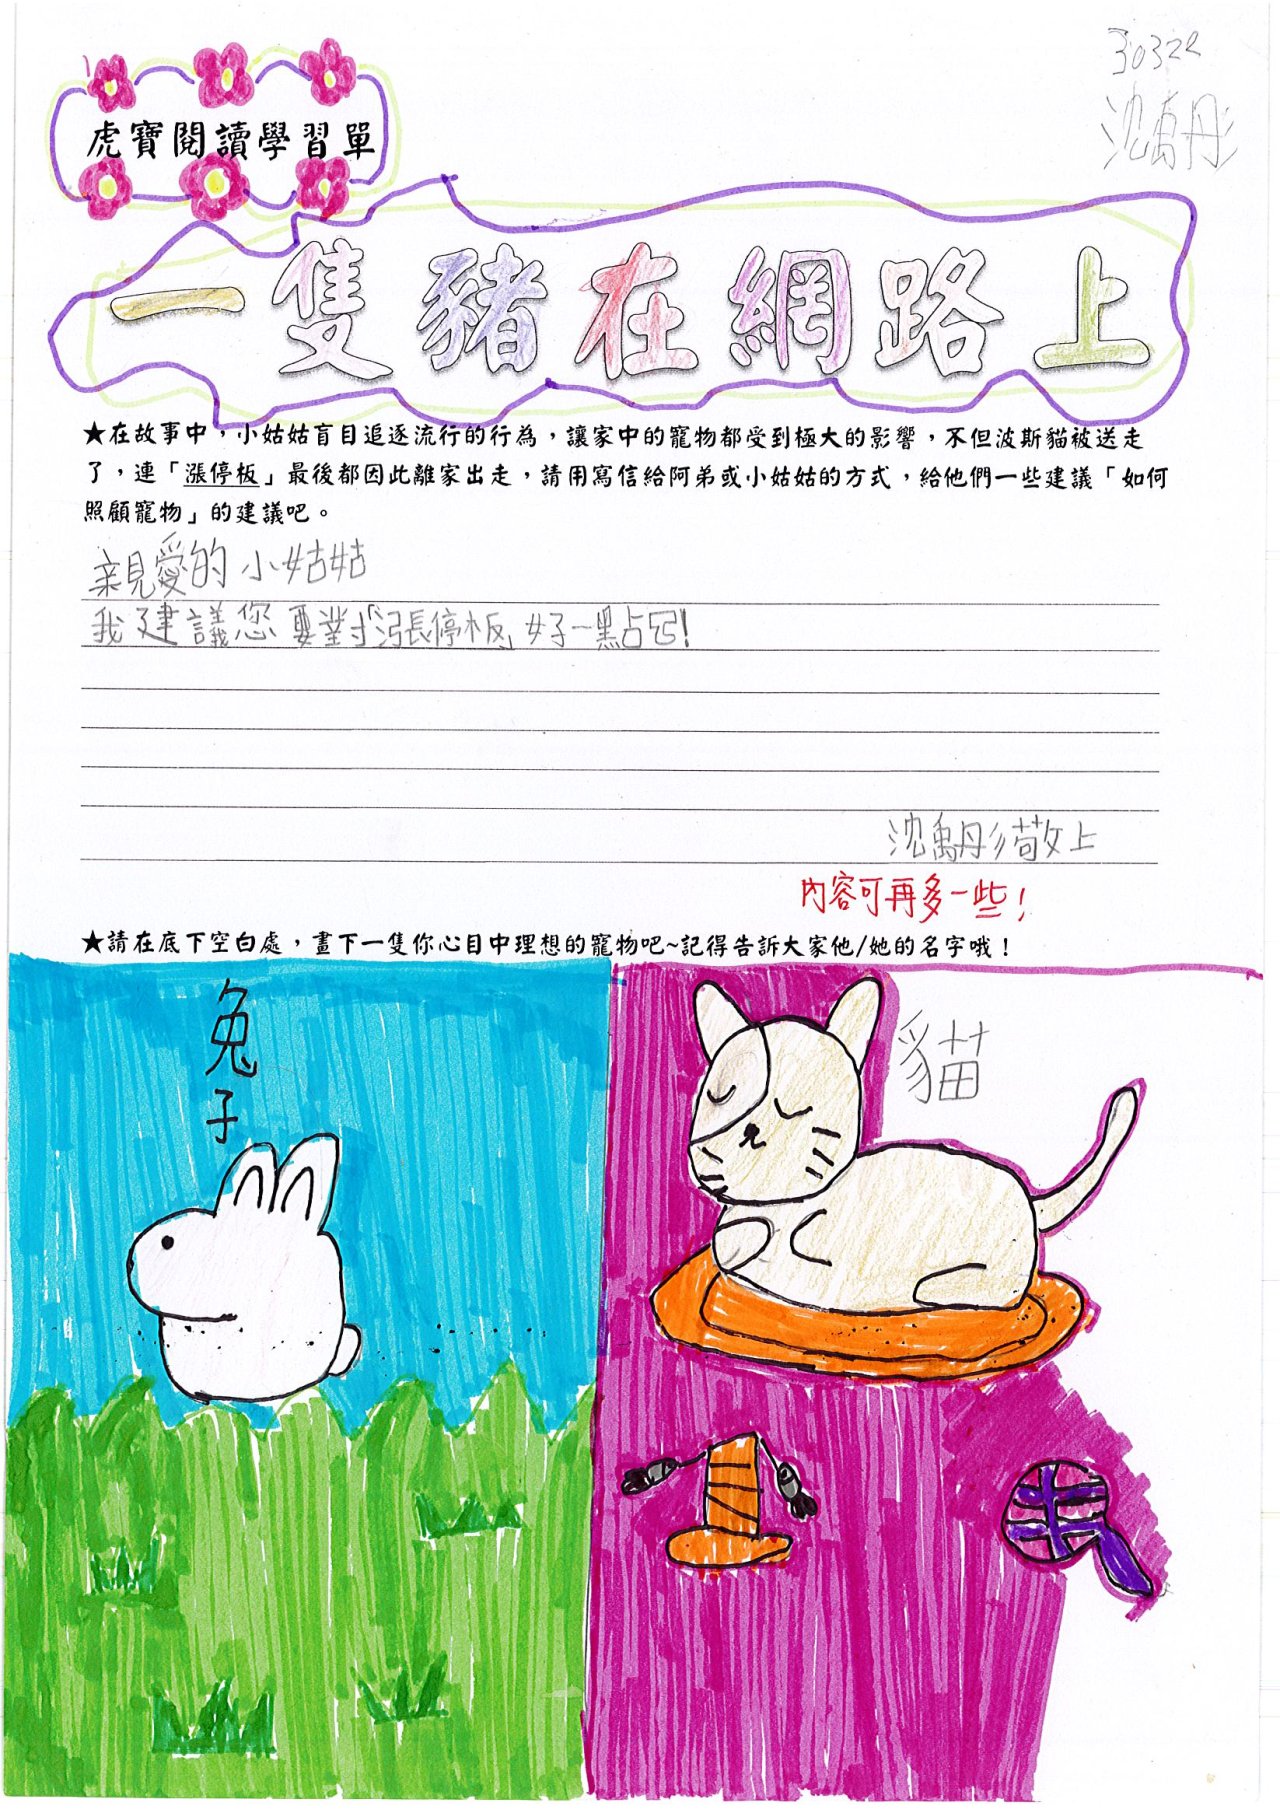 30322
沈禹彤
虎寶閱讀學習單
一隻豬在網路上
★在故事中，小姑姑盲目追逐流行的行為，讓家中的寵物都受到極大的影響，不但波斯貓被送走
了，連「漲停板」最後都因此離家出走，請用寫信給阿弟或小姑姑的方式，給他們一些建議「如何
照顧寵物」的建議吧。
親愛的小姑姑
我建議您要對「漲停板」好一點
沈禹彤敬上
內容可再多一些！
★請在底下空白處，畫下一隻你心目中理想的寵物吧~記得告訴大家他/她的名字哦！
兔子
貓